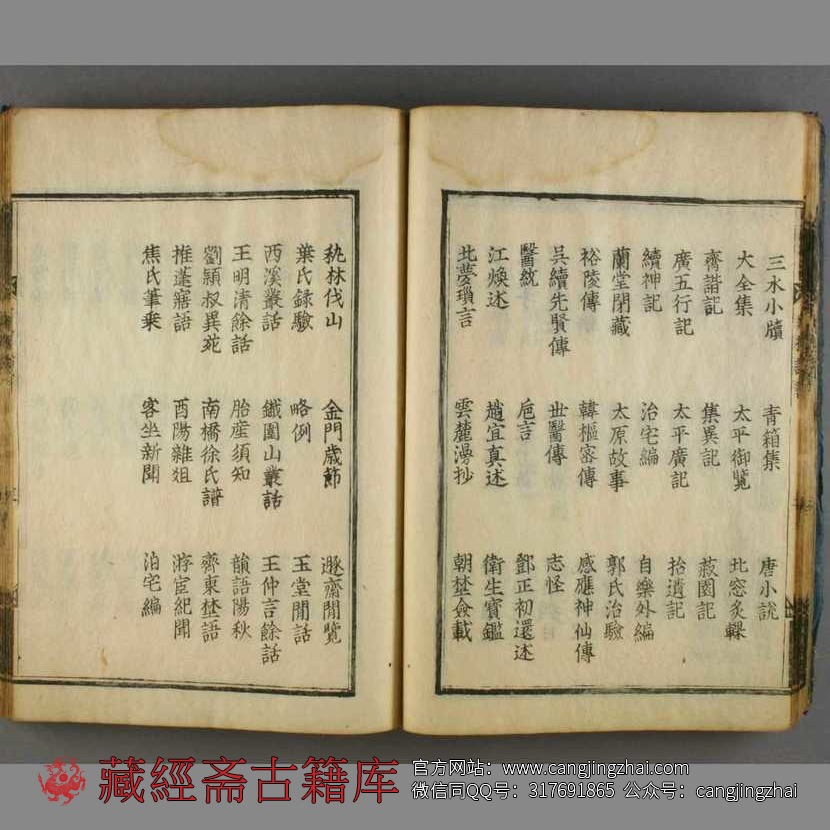 三水小牘 青箱集 唐小說
大全集 太平御覽 北窓炙輠
齊諧記 集異記 菽園記
廣五行記 太平廣記 拾遺記
續神記 治宅編 自樂外編
蘭堂閒藏 太原故事 郭氏治驗
裕陵傳 韓樞密傳 感應神仙傳
吳續先賢傳 世醫傳 志怪
醫統 巵言 鄧正初還述
江煥述 趙宜真述 衛生寶鑑
北夢瑣言 雲麓漫抄 朝埜僉載
秇林伐山 金門歲節 遯齋閒覽
葉氏録驗 略例 玉堂閒話
西溪叢話 鐵圍山叢話 王仲言餘話
王明清餘話 胎産須知 韻語陽秋
劉頴叔異苑 南橋徐氏譜 齊東埜語
推蓬寤語 酉陽雜俎 游宦紀聞
焦氏筆乗 客坐新聞 泊宅編
藏經斋古籍库
官方网站：www.cangjingzhai.com
微信同QQ号：317691865 公众号：cangjingzhai